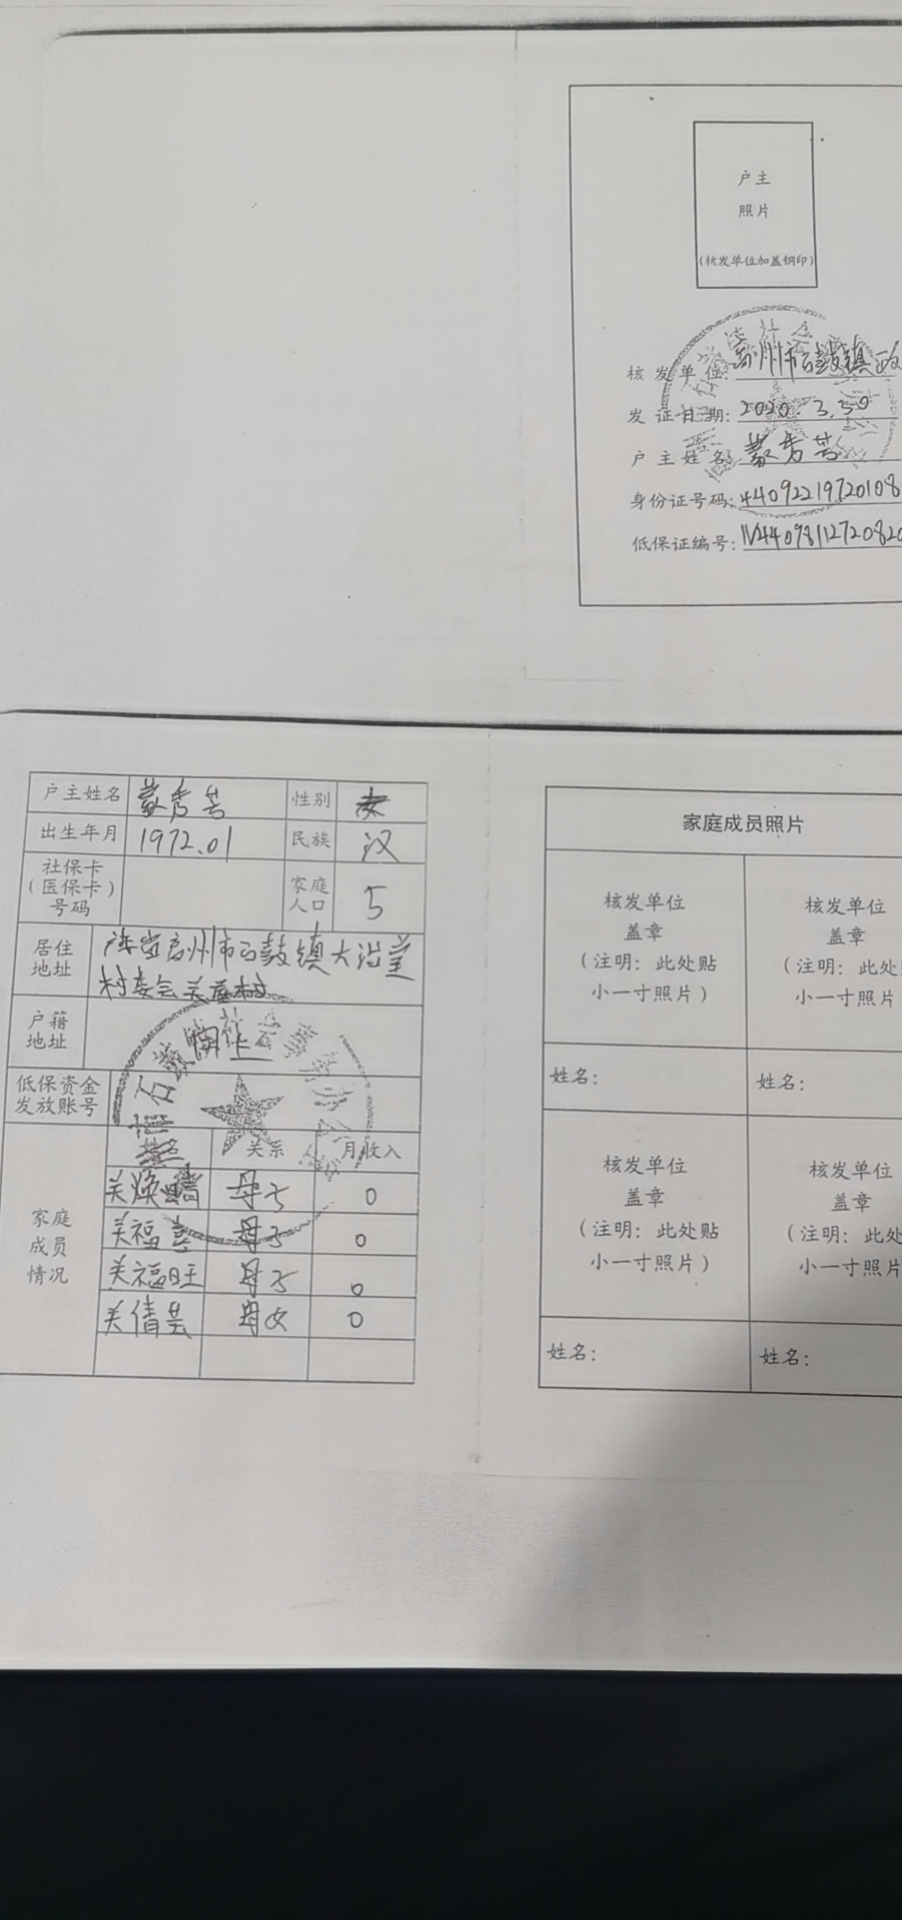 户主
照片
(核发单位加盖钢印)
核发单位:高州市石鼓镇政
发证日期:2020.3.30
户主姓名:蒙秀芳
身份证号码:44092219720108
低保证编号:
户主姓名 蒙秀芳 性别 女
出生年月 1972.01 民族 汉
社保卡
(医保卡)
号码
家庭
人口 5
居住
地址
高州市石鼓镇大
村委会
户籍
地址
低保资金
发放账号
姓名 关系 月收入
家庭
成员
情况
母子 0
关福 母子 0
关福旺 母子 0
关倩芸 母女 0
家庭成员照片
核发单位
盖章
(注明:此处贴
小一寸照片)
核发单位
盖章
(注明:此处
小一寸照片
姓名:
姓名:
核发单位
盖章
(注明:此处贴
小一寸照片)
核发单位
盖章
(注明:此处
小一寸照片
姓名:
姓名: